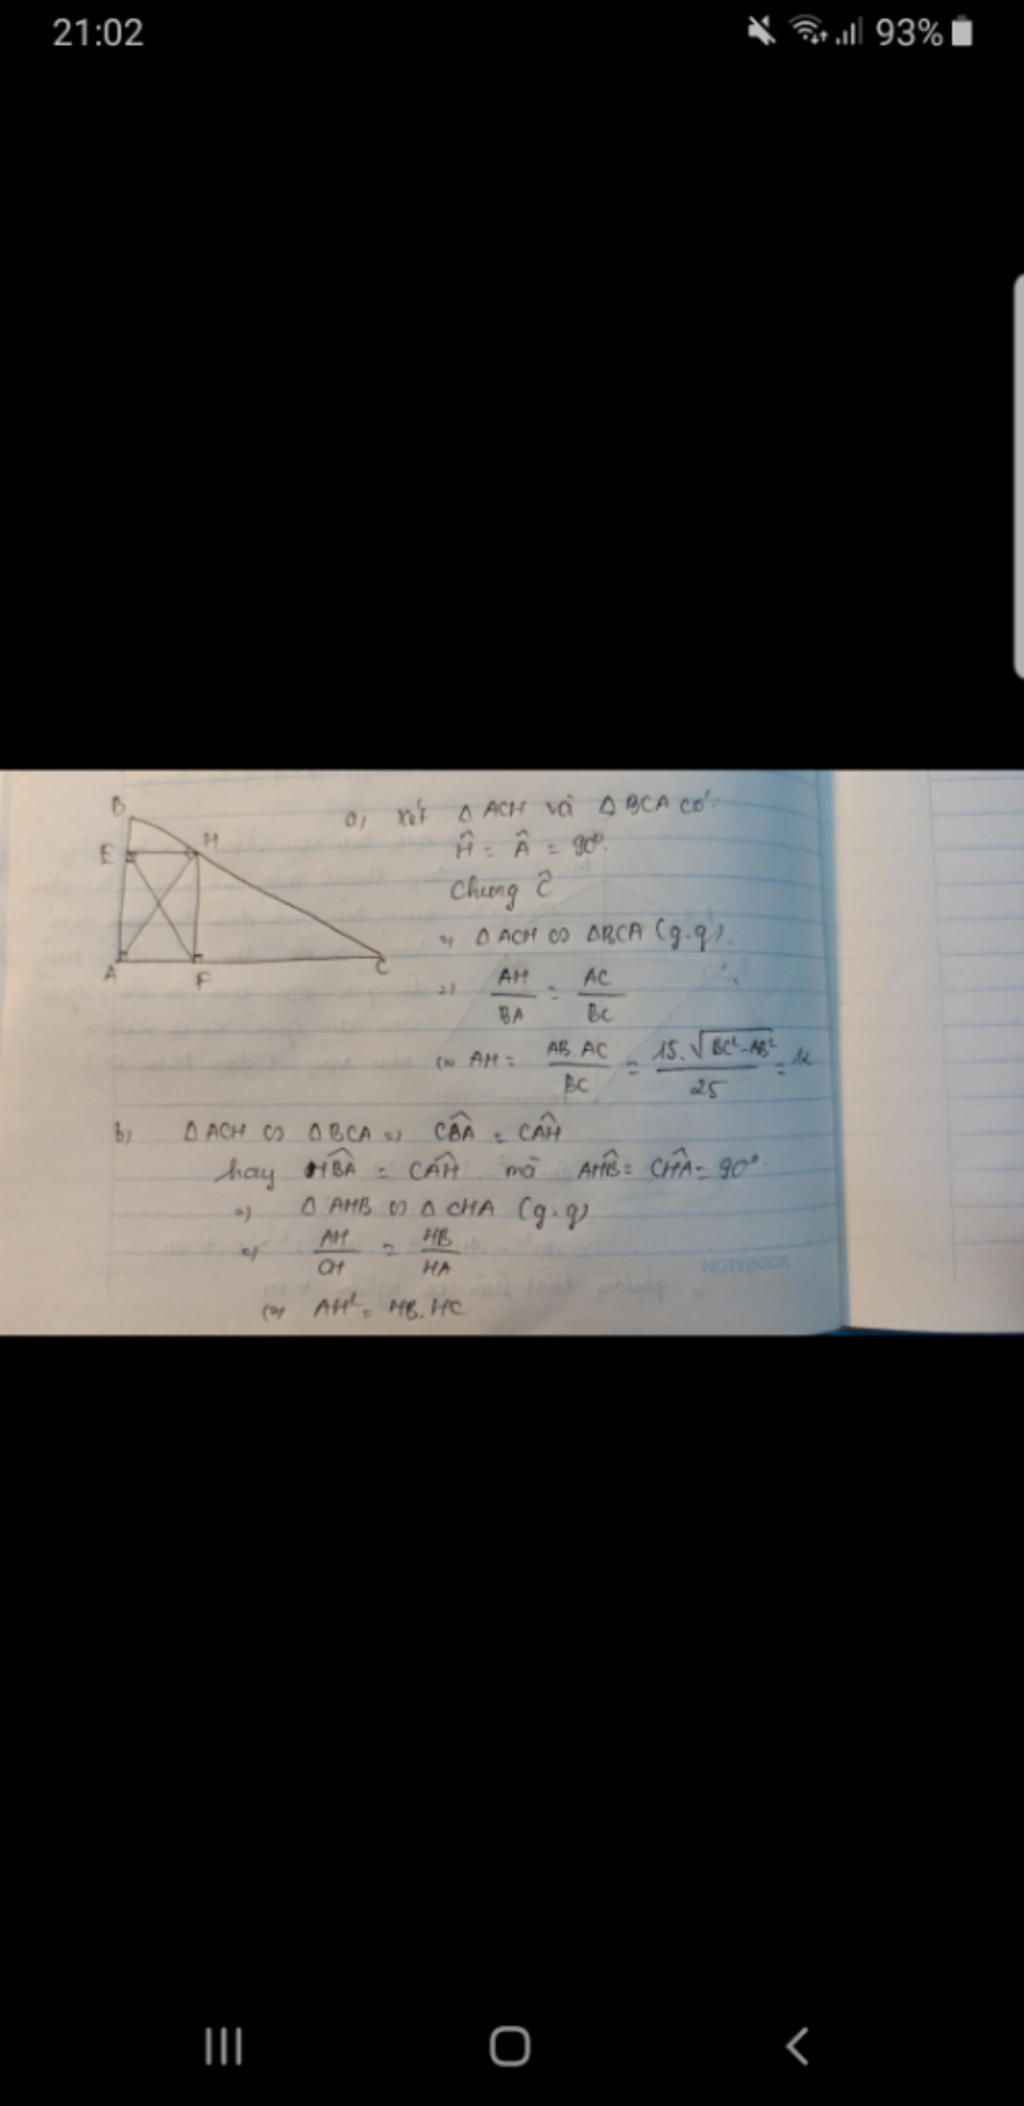 21:02 93%
B
H
E
A
F
C
a, xét Δ ACH và Δ BCA có:
Ĥ = Â = 90°.
Chung Ĉ
=> Δ ACH ∽ ΔBCA (g.g).
=> AH/BA = AC/BC
<=> AH = AB.AC/BC = 15.√BC²-AB²/25 = 12
b, Δ ACH ∽ Δ BCA => CB̂A = CÂH
hay HB̂A = CÂH mà AĤB = CĤA = 90°.
=> Δ AHB ∽ Δ CHA (g.g)
=> AH/CH = HB/HA
<=> AH² = HB.HC
NOTEBOOK